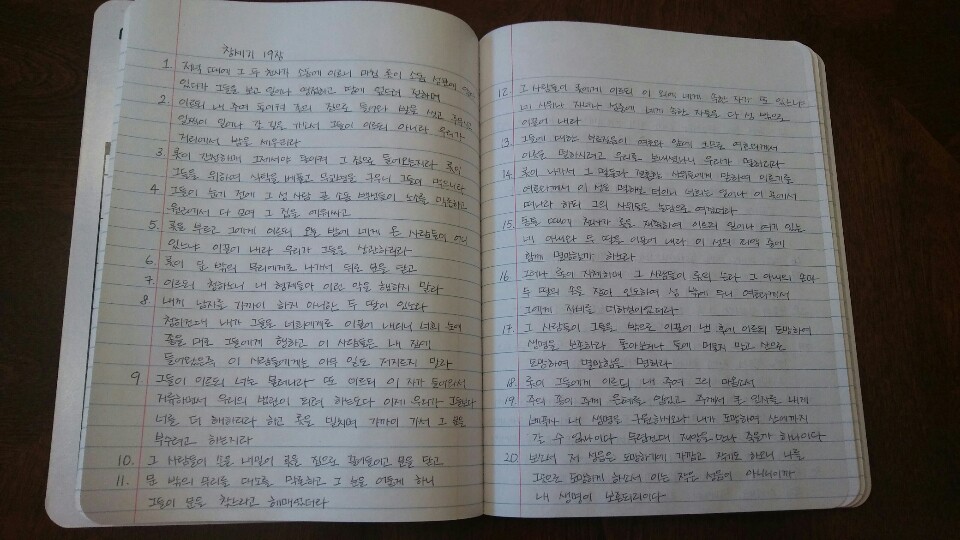 창세기 19장
1. 저녁 때에 그 두 천사가 소돔에 이르니 마침 롯이 소돔 성문에 앉아
있다가 그들을 보고 일어나 영접하고 땅에 엎드려 절하며
2. 이르되 내 주여 돌이켜 종의 집으로 들어와 발을 씻고 주무시고
일찍이 일어나 갈 길을 가소서 그들이 이르되 아니라 우리가
거리에서 밤을 새우리라
3. 롯이 간청하매 그제서야 돌이켜 그 집으로 들어오는지라 롯이
그들을 위하여 식탁을 베풀고 무교병을 구우니 그들이 먹으니라
4. 그들이 눕기 전에 그 성 사람 곧 소돔 백성들이 노소를 막론하고
원근에서 다 모여 그 집을 에워싸고
5. 롯을 부르고 그에게 이르되 오늘 밤에 네게 온 사람들이 어디
있느냐 이끌어 내라 우리가 그들을 상관하리라
6. 롯이 문 밖의 무리에게로 나가서 뒤로 문을 닫고
7. 이르되 청하노니 내 형제들아 이런 악을 행하지 말라
8. 내게 남자를 가까이 하지 아니한 두 딸이 있노라
청하건대 내가 그들을 너희에게로 이끌어 내리니 너희 눈에
좋을 대로 그들에게 행하고 이 사람들은 내 집에
들어왔은즉 이 사람들에게는 아무 일도 저지르지 말라
9. 그들이 이르되 너는 물러나라 또 이르되 이 자가 들어와서
거류하면서 우리의 법관이 되려 하는도다 이제 우리가 그들보다
너를 더 해하리라 하고 롯을 밀치며 가까이 가서 그 문을
부수려고 하는지라
10. 그 사람들이 손을 내밀어 롯을 집으로 끌어들이고 문을 닫고
11. 문 밖의 무리를 대소를 막론하고 그 눈을 어둡게 하니
그들이 문을 찾느라고 헤매었더라
12. 그 사람들이 롯에게 이르되 이 외에 네게 속한 자가 또 있느냐
네 사위나 자녀나 성중에 네게 속한 자들을 다 성 밖으로
이끌어 내라
13. 그들에 대한 부르짖음이 여호와 앞에 크므로 여호와께서
이곳을 멸하시려고 우리를 보내셨나니 우리가 멸하리라
14. 롯이 나가서 그 딸들과 결혼할 사위들에게 말하여 이르기를
여호와께서 이 성을 멸하실 터이니 너희는 일어나 이 곳에서
떠나라 하되 그의 사위들은 농담으로 여겼더라
15. 동틀 때에 천사가 롯을 재촉하여 이르되 일어나 여기 있는
네 아내와 두 딸을 이끌어 내라 이 성의 죄악 중에
함께 멸망할까 하노라
16. 그러나 롯이 지체하매 그 사람들이 롯의 손과 그 아내의 손과
두 딸의 손을 잡아 인도하여 성 밖에 두니 여호와께서
그에게 자비를 더하심이었더라
17. 그 사람들이 그들을 밖으로 이끌어 낸 후에 이르되 도망하여
생명을 보존하라 돌아보거나 들에 머물지 말고 산으로
도망하여 멸망함을 면하라
18. 롯이 그들에게 이르되 내 주여 그리 마옵소서
19. 주의 종이 주께 은혜를 입었고 주께서 큰 인자를 내게
베푸사 내 생명을 구원하시오나 내가 도망하여 산에까지
갈 수 없나이다 두렵건대 재앙을 만나 죽을까 하나이다
20. 보소서 저 성읍은 도망하기에 가깝고 작기도 하오니 나를
그곳으로 도망하게 하소서 이는 작은 성읍이 아니니이까
내 생명이 보존되리이다